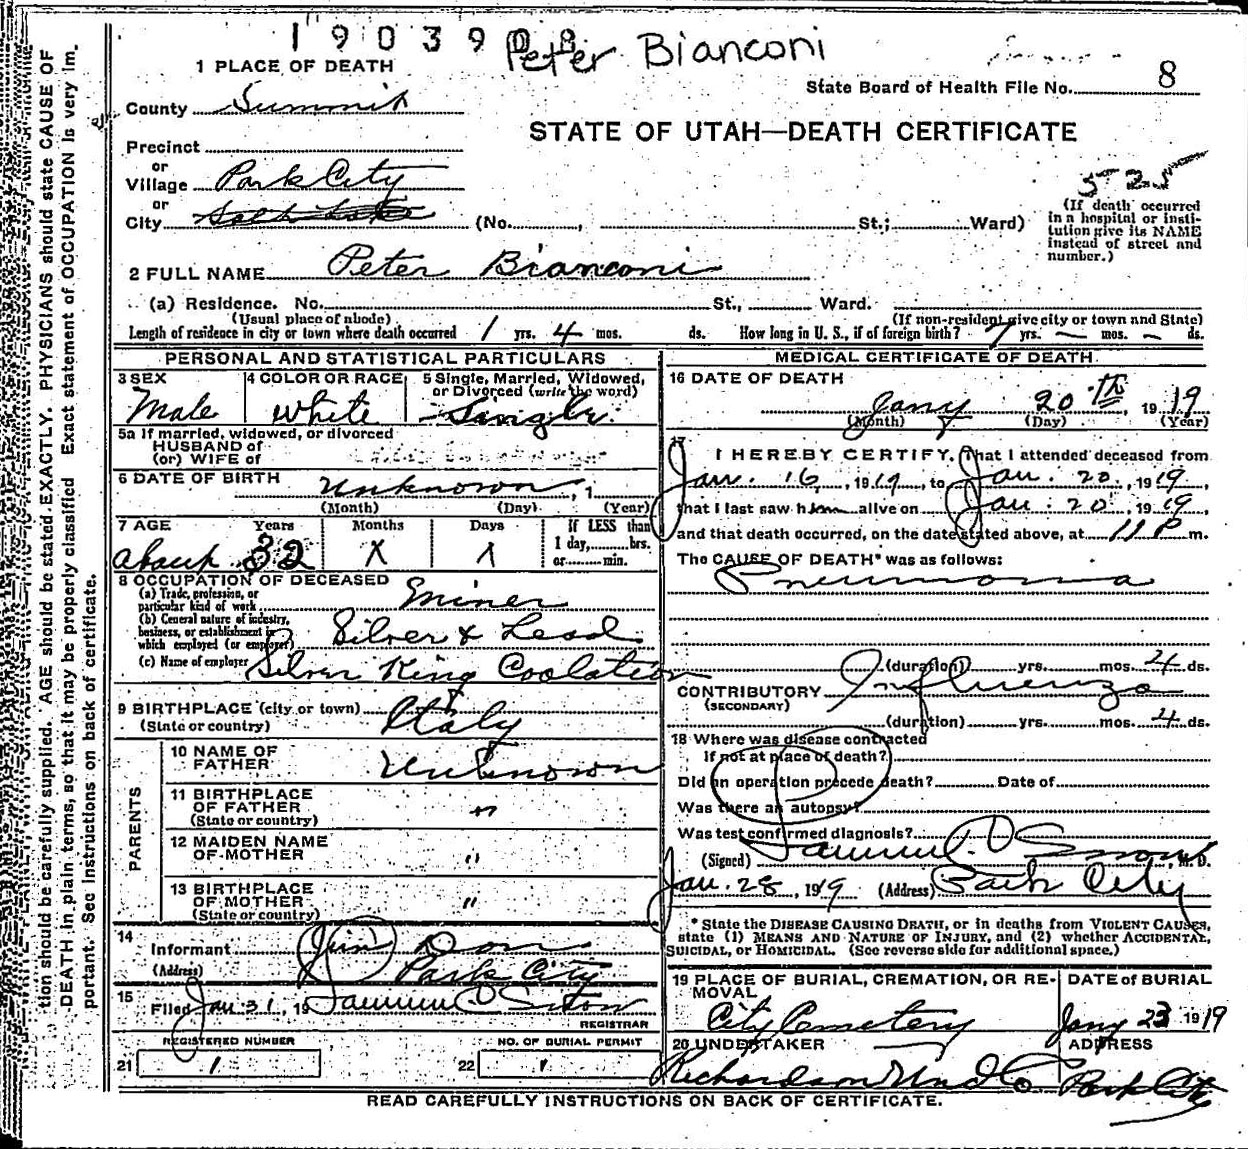 1903908 Peter Bianconi
1 PLACE OF DEATH
State Board of Health File No. 8
County Summit
STATE OF UTAH—DEATH CERTIFICATE
Precinct
or
Village Park City
525
or
City Salt Lake (No. , St.; Ward)
(If death occurred
in a hospital or insti-
tution give its NAME
instead of street and
number.)
2 FULL NAME Peter Bianconi
(a) Residence. No. St., Ward.
(Usual place of abode) (If non-resident give city or town and State)
Length of residence in city or town where death occurred 1 yrs. 4 mos. ds. How long in U. S., if of foreign birth? 7 yrs. – mos. – ds.
PERSONAL AND STATISTICAL PARTICULARS
3 SEX 4 COLOR OR RACE 5 Single, Married, Widowed,
or Divorced (write the word)
Male White Single
5a If married, widowed, or divorced
HUSBAND of
(or) WIFE of
6 DATE OF BIRTH Unknown , 1
(Month) (Day) (Year)
7 AGE Years Months Days If LESS than
1 day, hrs.
or min.
About 32 X X
8 OCCUPATION OF DECEASED
(a) Trade, profession, or
particular kind of work Miner
(b) General nature of industry,
business, or establishment in
which employed (or employer) Silver & Lead
(c) Name of employer Silver King Coolation
9 BIRTHPLACE (city or town)
(State or country) Italy
PARENTS
10 NAME OF
FATHER Unknown
11 BIRTHPLACE
OF FATHER "
(State or country)
12 MAIDEN NAME
OF MOTHER "
13 BIRTHPLACE
OF MOTHER "
(State or country)
14
Informant Jim Don
(Address) Park City
15
Filed Jan 31, 19
REGISTRAR
REGISTERED NUMBER NO. OF BURIAL PERMIT
21 1 22 1
MEDICAL CERTIFICATE OF DEATH
16 DATE OF DEATH
Jany 20th, 1919
(Month) (Day) (Year)
17
I HEREBY CERTIFY, That I attended deceased from
Jan. 16, 1919, to Jan. 20, 1919,
that I last saw him alive on Jan. 20, 1919,
and that death occurred, on the date stated above, at 11 P m.
The CAUSE OF DEATH* was as follows:
Pneumonia
(duration) yrs. mos. 4 ds.
CONTRIBUTORY Influenza
(SECONDARY)
(duration) yrs. mos. 4 ds.
18 Where was disease contracted
If not at place of death?
Did an operation precede death? Date of
Was there an autopsy?
Was test confirmed diagnosis?
(Signed) , M. D.
Jan. 28, 1919 (Address) Park City
* State the DISEASE CAUSING DEATH, or in deaths from VIOLENT CAUSES,
state (1) MEANS AND NATURE OF INJURY, and (2) whether ACCIDENTAL,
SUICIDAL, or HOMICIDAL. (See reverse side for additional space.)
19 PLACE OF BURIAL, CREMATION, OR RE-
MOVAL
City Cemetery
DATE of BURIAL
Jany 23 1919
20 UNDERTAKER
Richardson Und Co
ADDRESS
Park City
READ CAREFULLY INSTRUCTIONS ON BACK OF CERTIFICATE.
tion should be carefully supplied. AGE should be stated EXACTLY. PHYSICIANS should state CAUSE OF
DEATH in plain terms, so that it may be properly classified Exact statement of OCCUPATION is very im.
portant. See instructions on back of certificate.